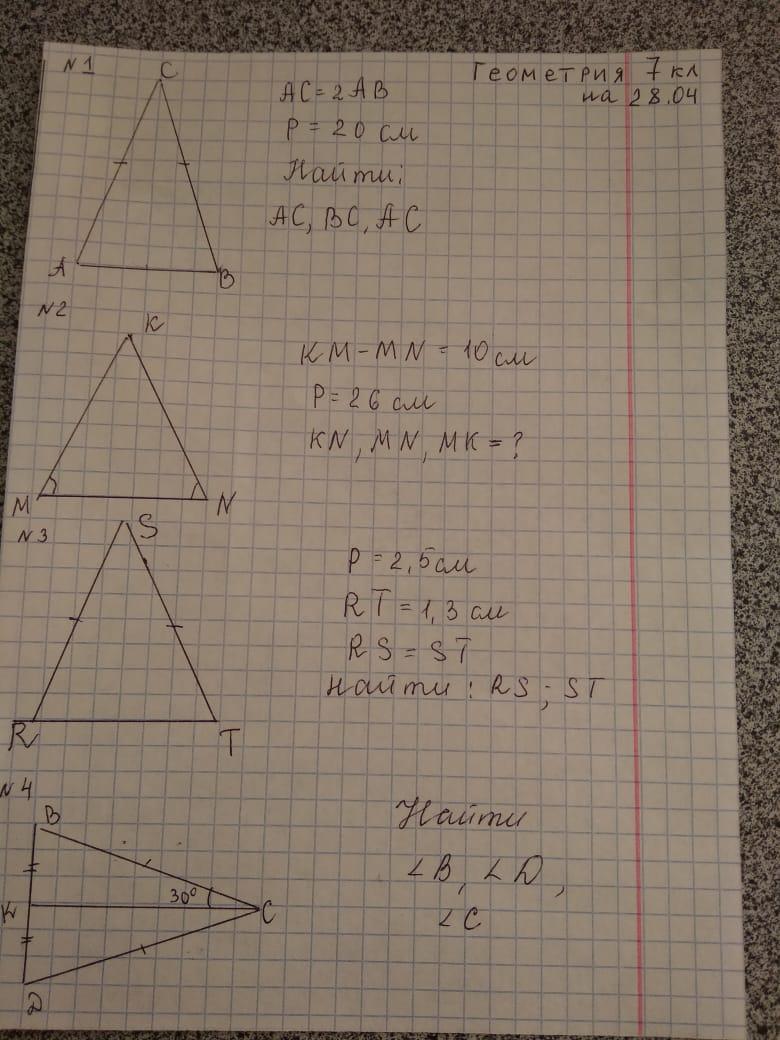 Геометрия 7 кл
на 28.04
№1
C
A
B
AC = 2AB
P = 20 см
Найти:
AC, BC, AC
№2
K
M
N
KM - MN = 10 см
P = 26 см
KN, MN, MK = ?
№3
S
R
T
P = 2,5 см
RT = 1,3 см
RS = ST
Найти: RS; ST
№4
B
K
30°
C
D
Найти
∠B, ∠D,
∠C